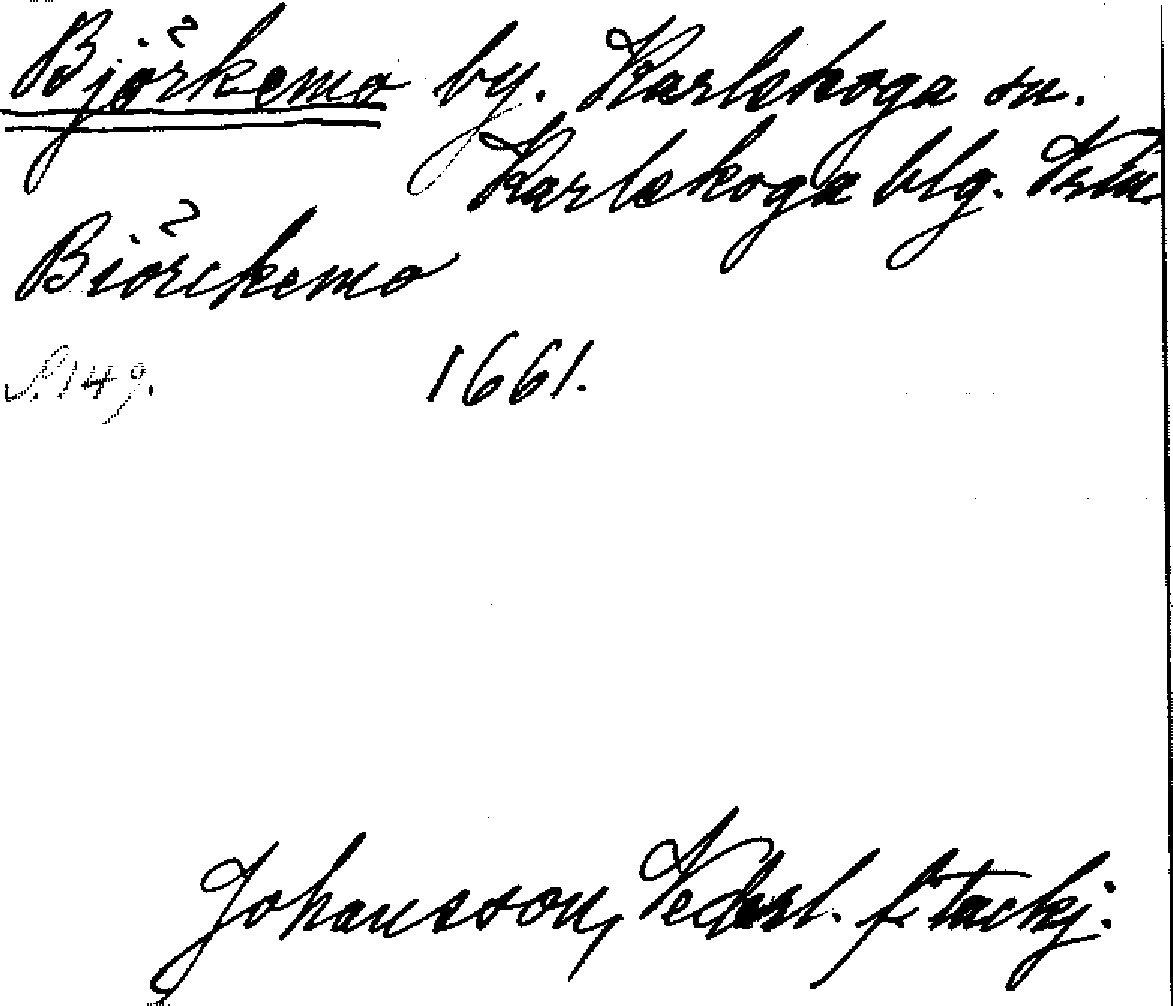 Björkemo by. Karlskoga sn.
Karlskoga blg.
Biörckemo
S. 149. 1661.
Johansson, f. tackj.